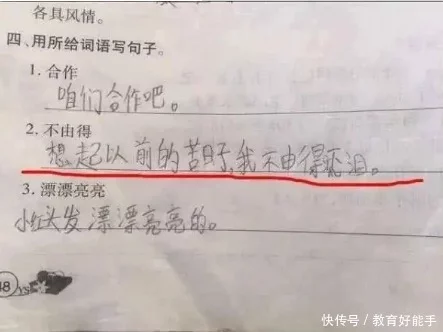 各具风情。
四、用所给词语写句子。
1. 合作
咱们合作吧。
2. 不由得
想起以前的苦,我不由得泪。
3. 漂漂亮亮
小红头发漂漂亮亮的。
48 YS
快传号 / 教育好能手